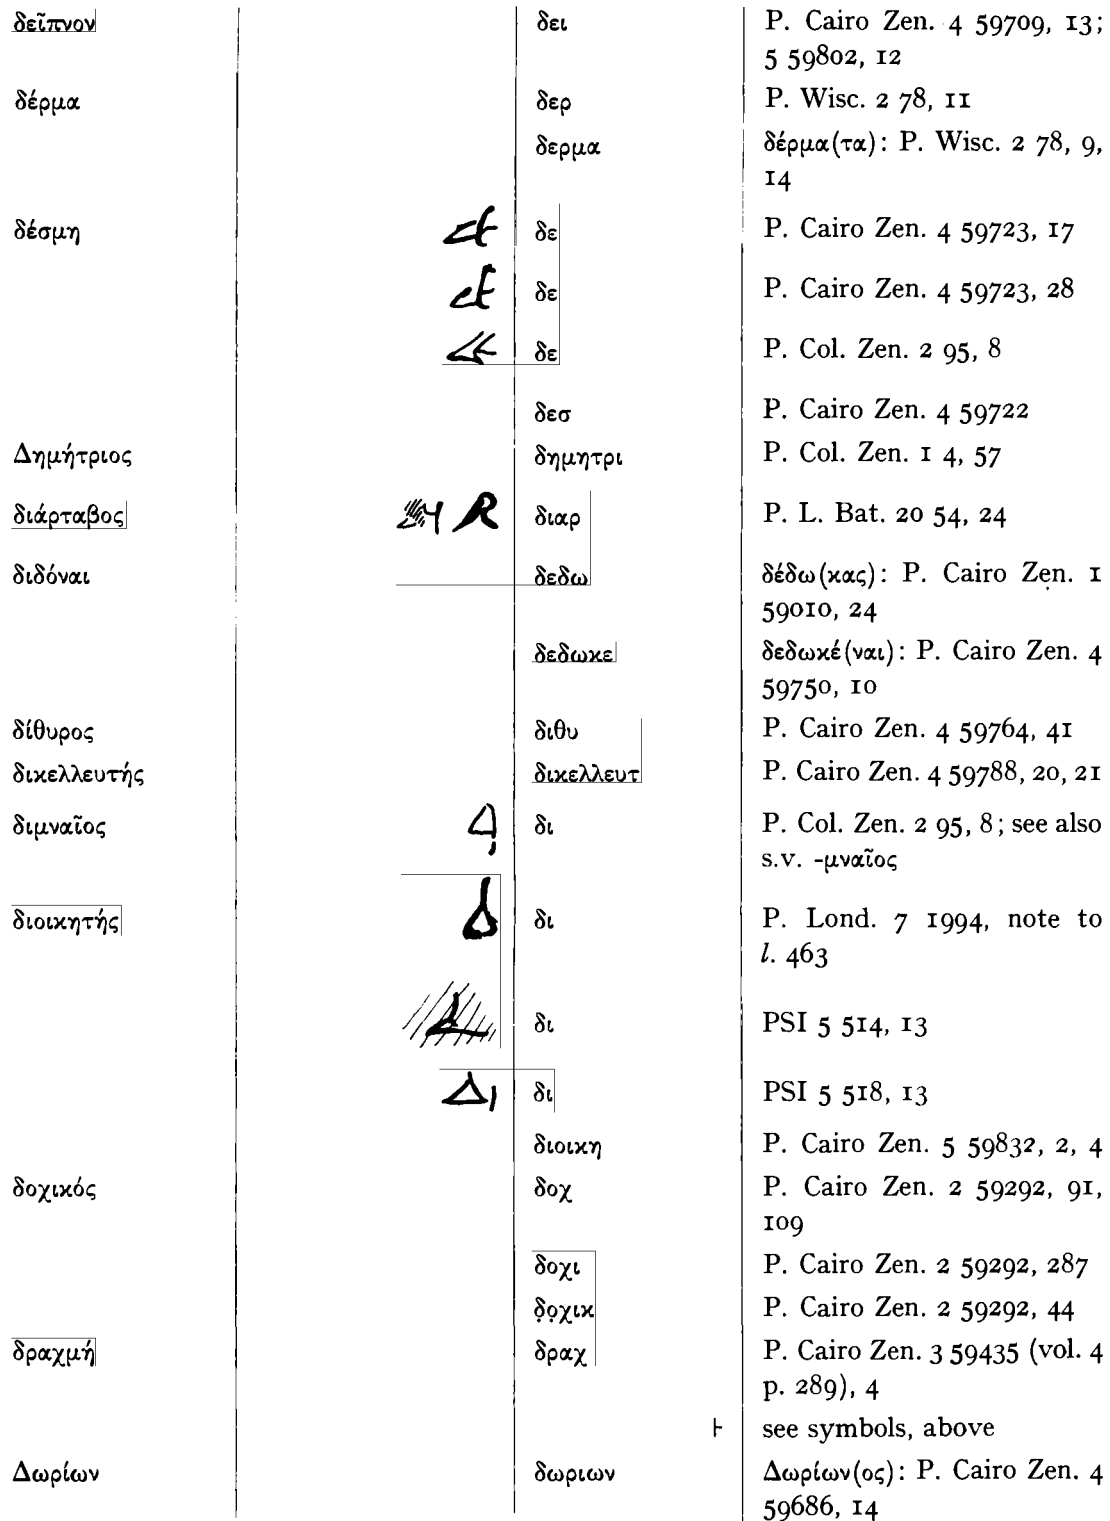 δεῖπνον δει P. Cairo Zen. 4 59709, 13;
5 59802, 12
δέρμα δερ P. Wisc. 2 78, 11
δερμα δέρμα(τα): P. Wisc. 2 78, 9,
14
δέσμη δε P. Cairo Zen. 4 59723, 17
δε P. Cairo Zen. 4 59723, 28
δε P. Col. Zen. 2 95, 8
δεσ P. Cairo Zen. 4 59722
Δημήτριος δημητρι P. Col. Zen. 1 4, 57
διάρταβος διαρ P. L. Bat. 20 54, 24
διδόναι δεδω δέδω(κας): P. Cairo Zen. 1
59010, 24
δεδωκε δεδωκέ(ναι): P. Cairo Zen. 4
59750, 10
δίθυρος διθυ P. Cairo Zen. 4 59764, 41
δικελλευτής δικελλευτ P. Cairo Zen. 4 59788, 20, 21
διμναῖος δι P. Col. Zen. 2 95, 8; see also
s.v. -μναῖος
διοικητής δι P. Lond. 7 1994, note to
l. 463
δι PSI 5 514, 13
δι PSI 5 518, 13
διοικη P. Cairo Zen. 5 59832, 2, 4
δοχικός δοχ P. Cairo Zen. 2 59292, 91,
109
δοχι P. Cairo Zen. 2 59292, 287
δ̣ο̣χικ P. Cairo Zen. 2 59292, 44
δραχμή δραχ P. Cairo Zen. 3 59435 (vol. 4
p. 289), 4
⊢ see symbols, above
Δωρίων δωριων Δωρίων(ος): P. Cairo Zen. 4
59686, 14